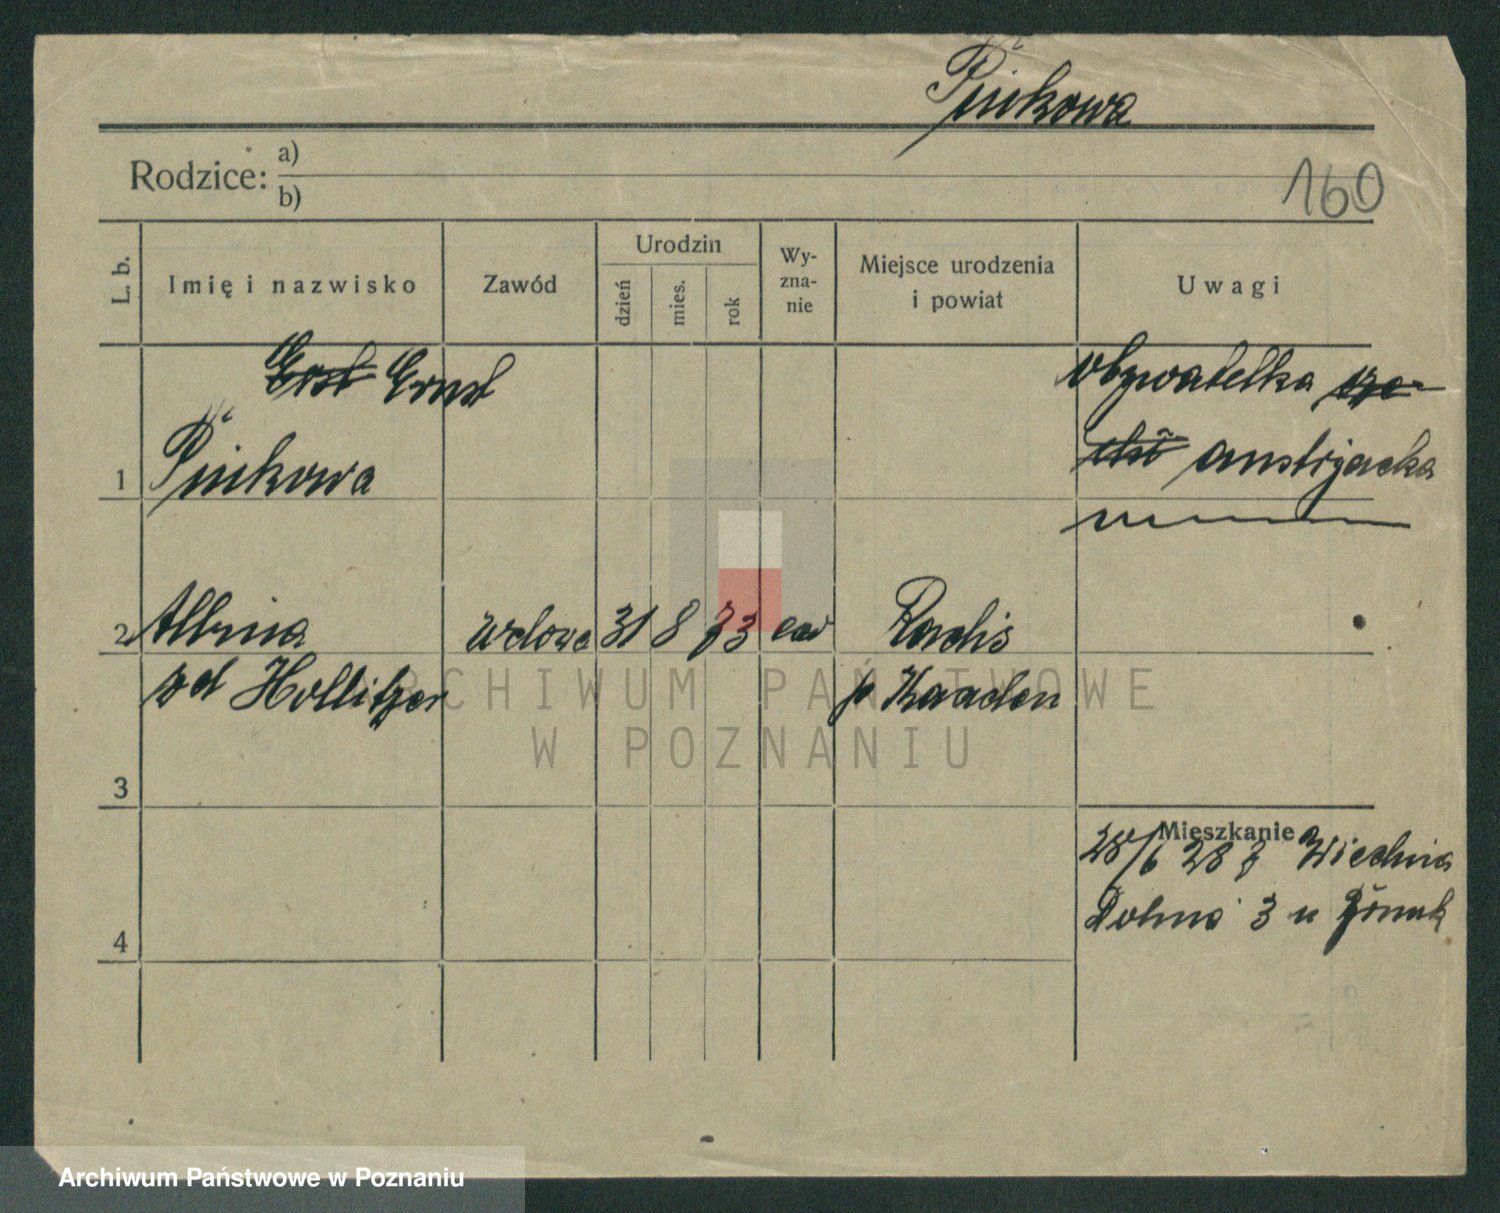 Pinkowa
Rodzice: a)
b)
160
L. b.
Imię i nazwisko
Zawód
Urodzin
dzień
mies.
rok
Wy-
zna-
nie
Miejsce urodzenia
i powiat
Uwagi
Ernst
obywatelka
1 Pinkowa
austrjacka
2 Albina wdowa 31 8 73 ew Radis
zd Hollitzer p Kaaden
ARCHIWUM PAŃSTWOWE
W POZNANIU
3
Mieszkanie
28/6 28 z Wiednia
Dolna 3 u
4
Archiwum Państwowe w Poznaniu